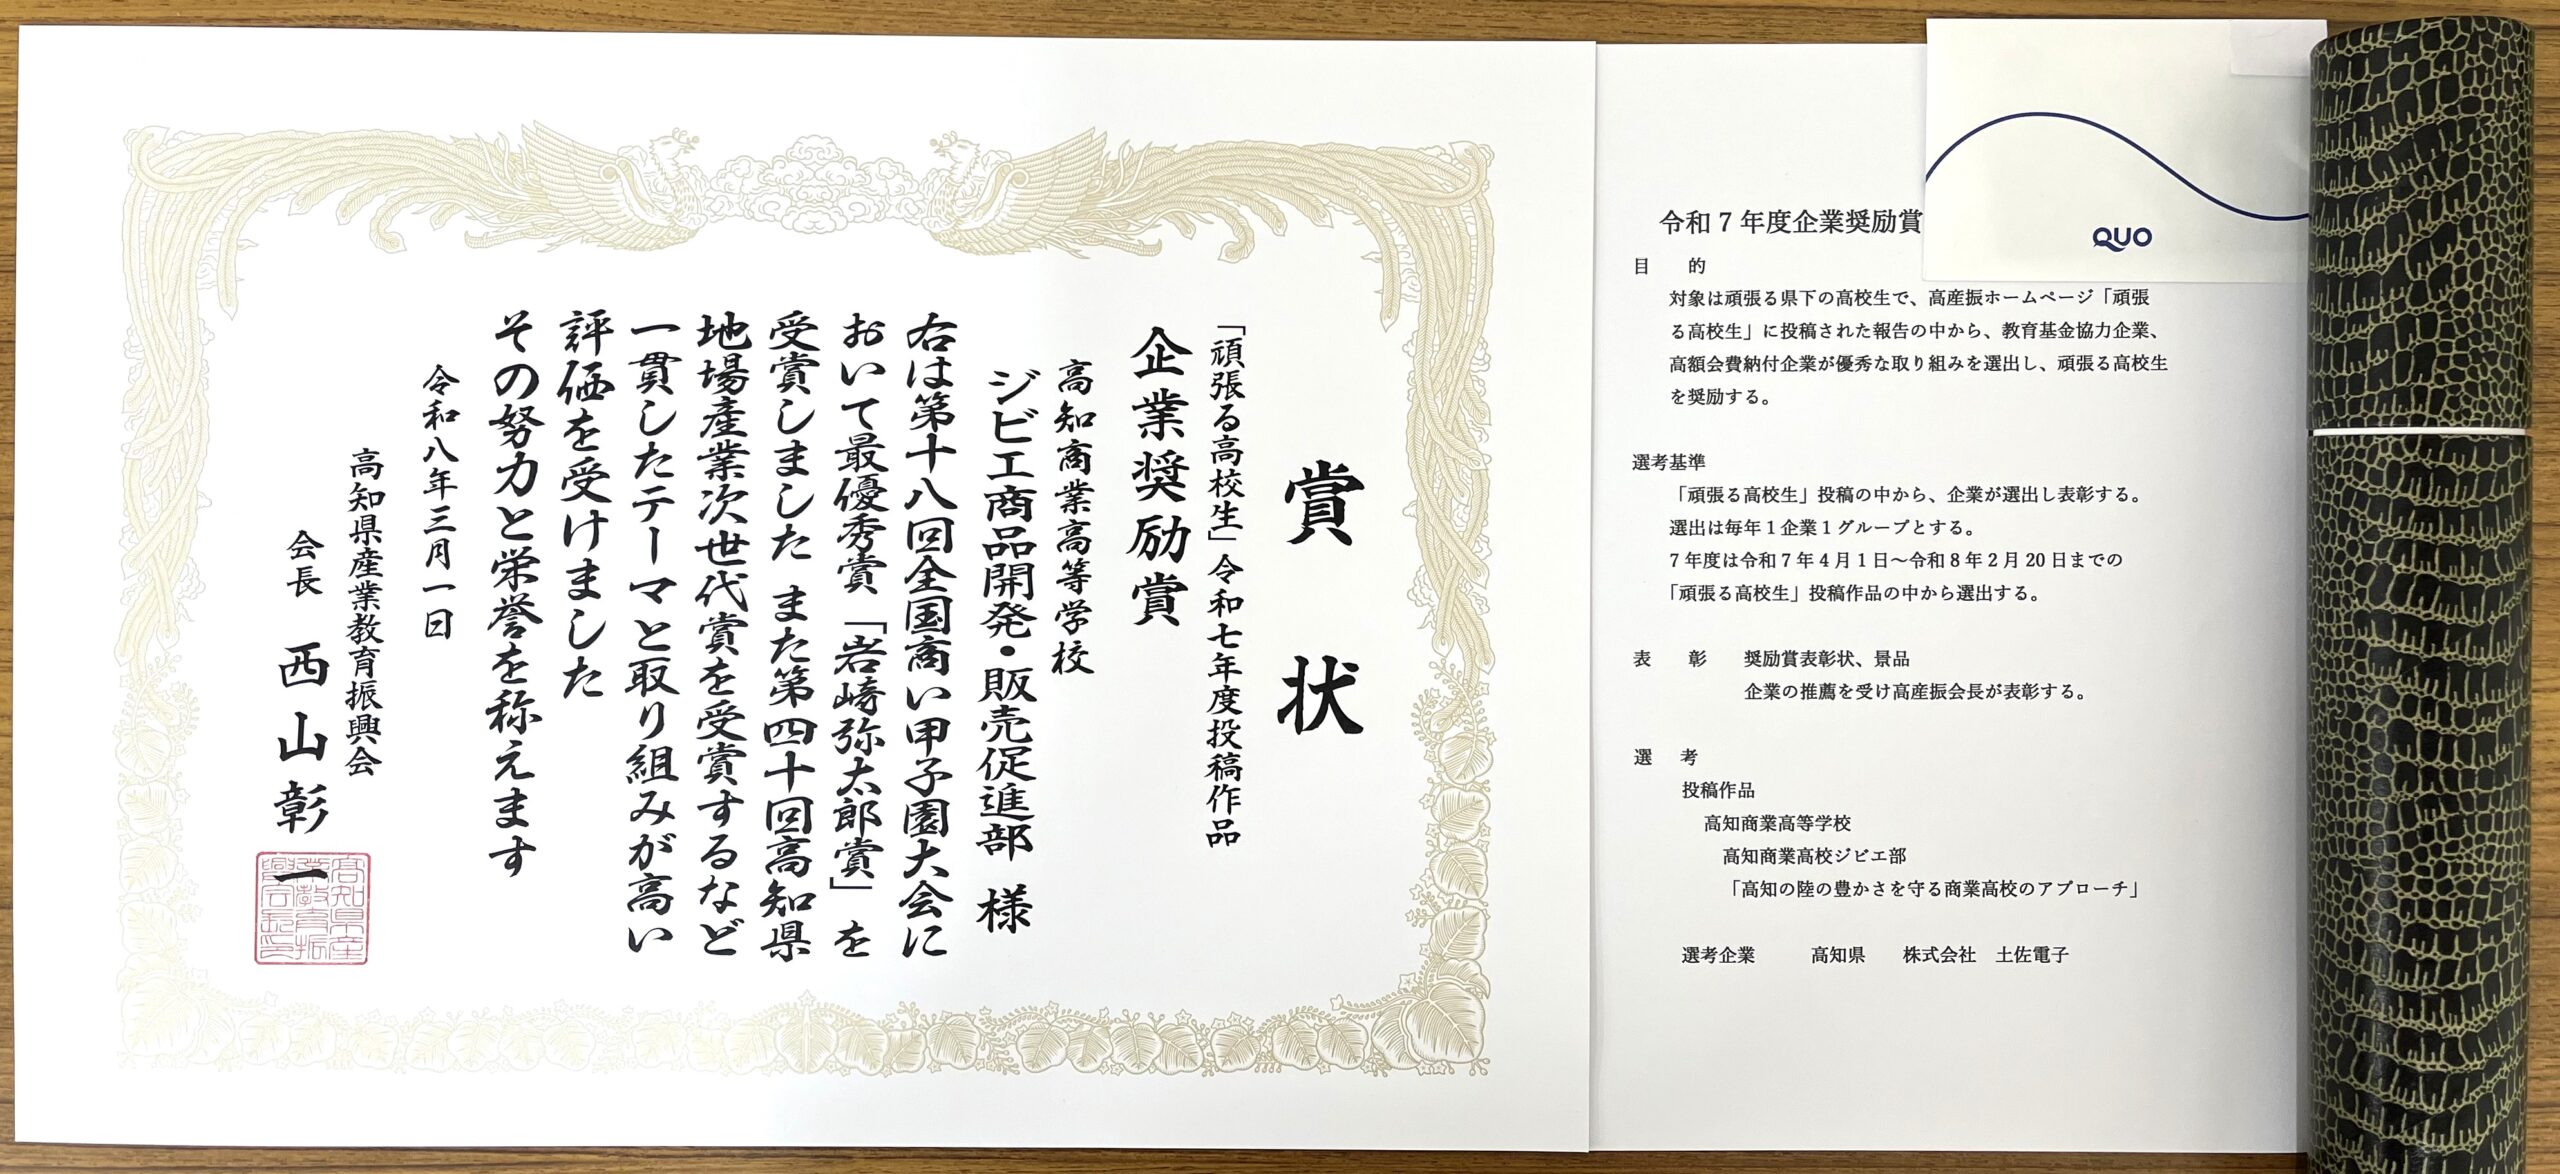 賞状
「頑張る高校生」令和七年度投稿作品
企業奨励賞
高知商業高等学校
ジビエ商品開発・販売促進部 様
右は第十八回全国商い甲子園大会に
おいて最優秀賞「岩崎弥太郎賞」を
受賞しました また第四十回高知県
地場産業次世代賞を受賞するなど
一貫したテーマと取り組みが高い
評価を受けました
その努力と栄誉を称えます
令和八年三月一日
高知県産業教育振興会
会長 西山彰一
令和7年度企業奨励賞
目 的
対象は頑張る県下の高校生で、高産振ホームページ「頑張
る高校生」に投稿された報告の中から、教育基金協力企業、
高額会費納付企業が優秀な取り組みを選出し、頑張る高校生
を奨励する。
選考基準
「頑張る高校生」投稿の中から、企業が選出し表彰する。
選出は毎年1企業1グループとする。
7年度は令和7年4月1日～令和8年2月20日までの
「頑張る高校生」投稿作品の中から選出する。
表 彰 奨励賞表彰状、景品
企業の推薦を受け高産振会長が表彰する。
選 考
投稿作品
高知商業高等学校
高知商業高校ジビエ部
「高知の陸の豊かさを守る商業高校のアプローチ」
選考企業 高知県 株式会社 土佐電子
QUO